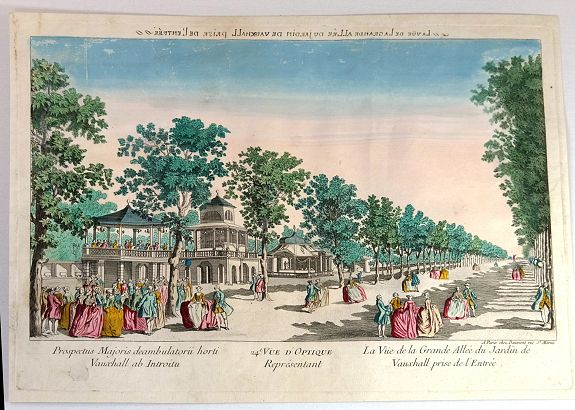 La Vüe de la Grande Allée du Jardin de Vauxhall prise de l'Entrée
A Paris chez Daumont rue St. Martin
Prospectus Majoris deambulatorii horti
Vauxhall ab Introitu
24e. Vue d'Optique
Representant
La Vüe de la Grande Allée du Jardin de
Vauxhall prise de l'Entrée.